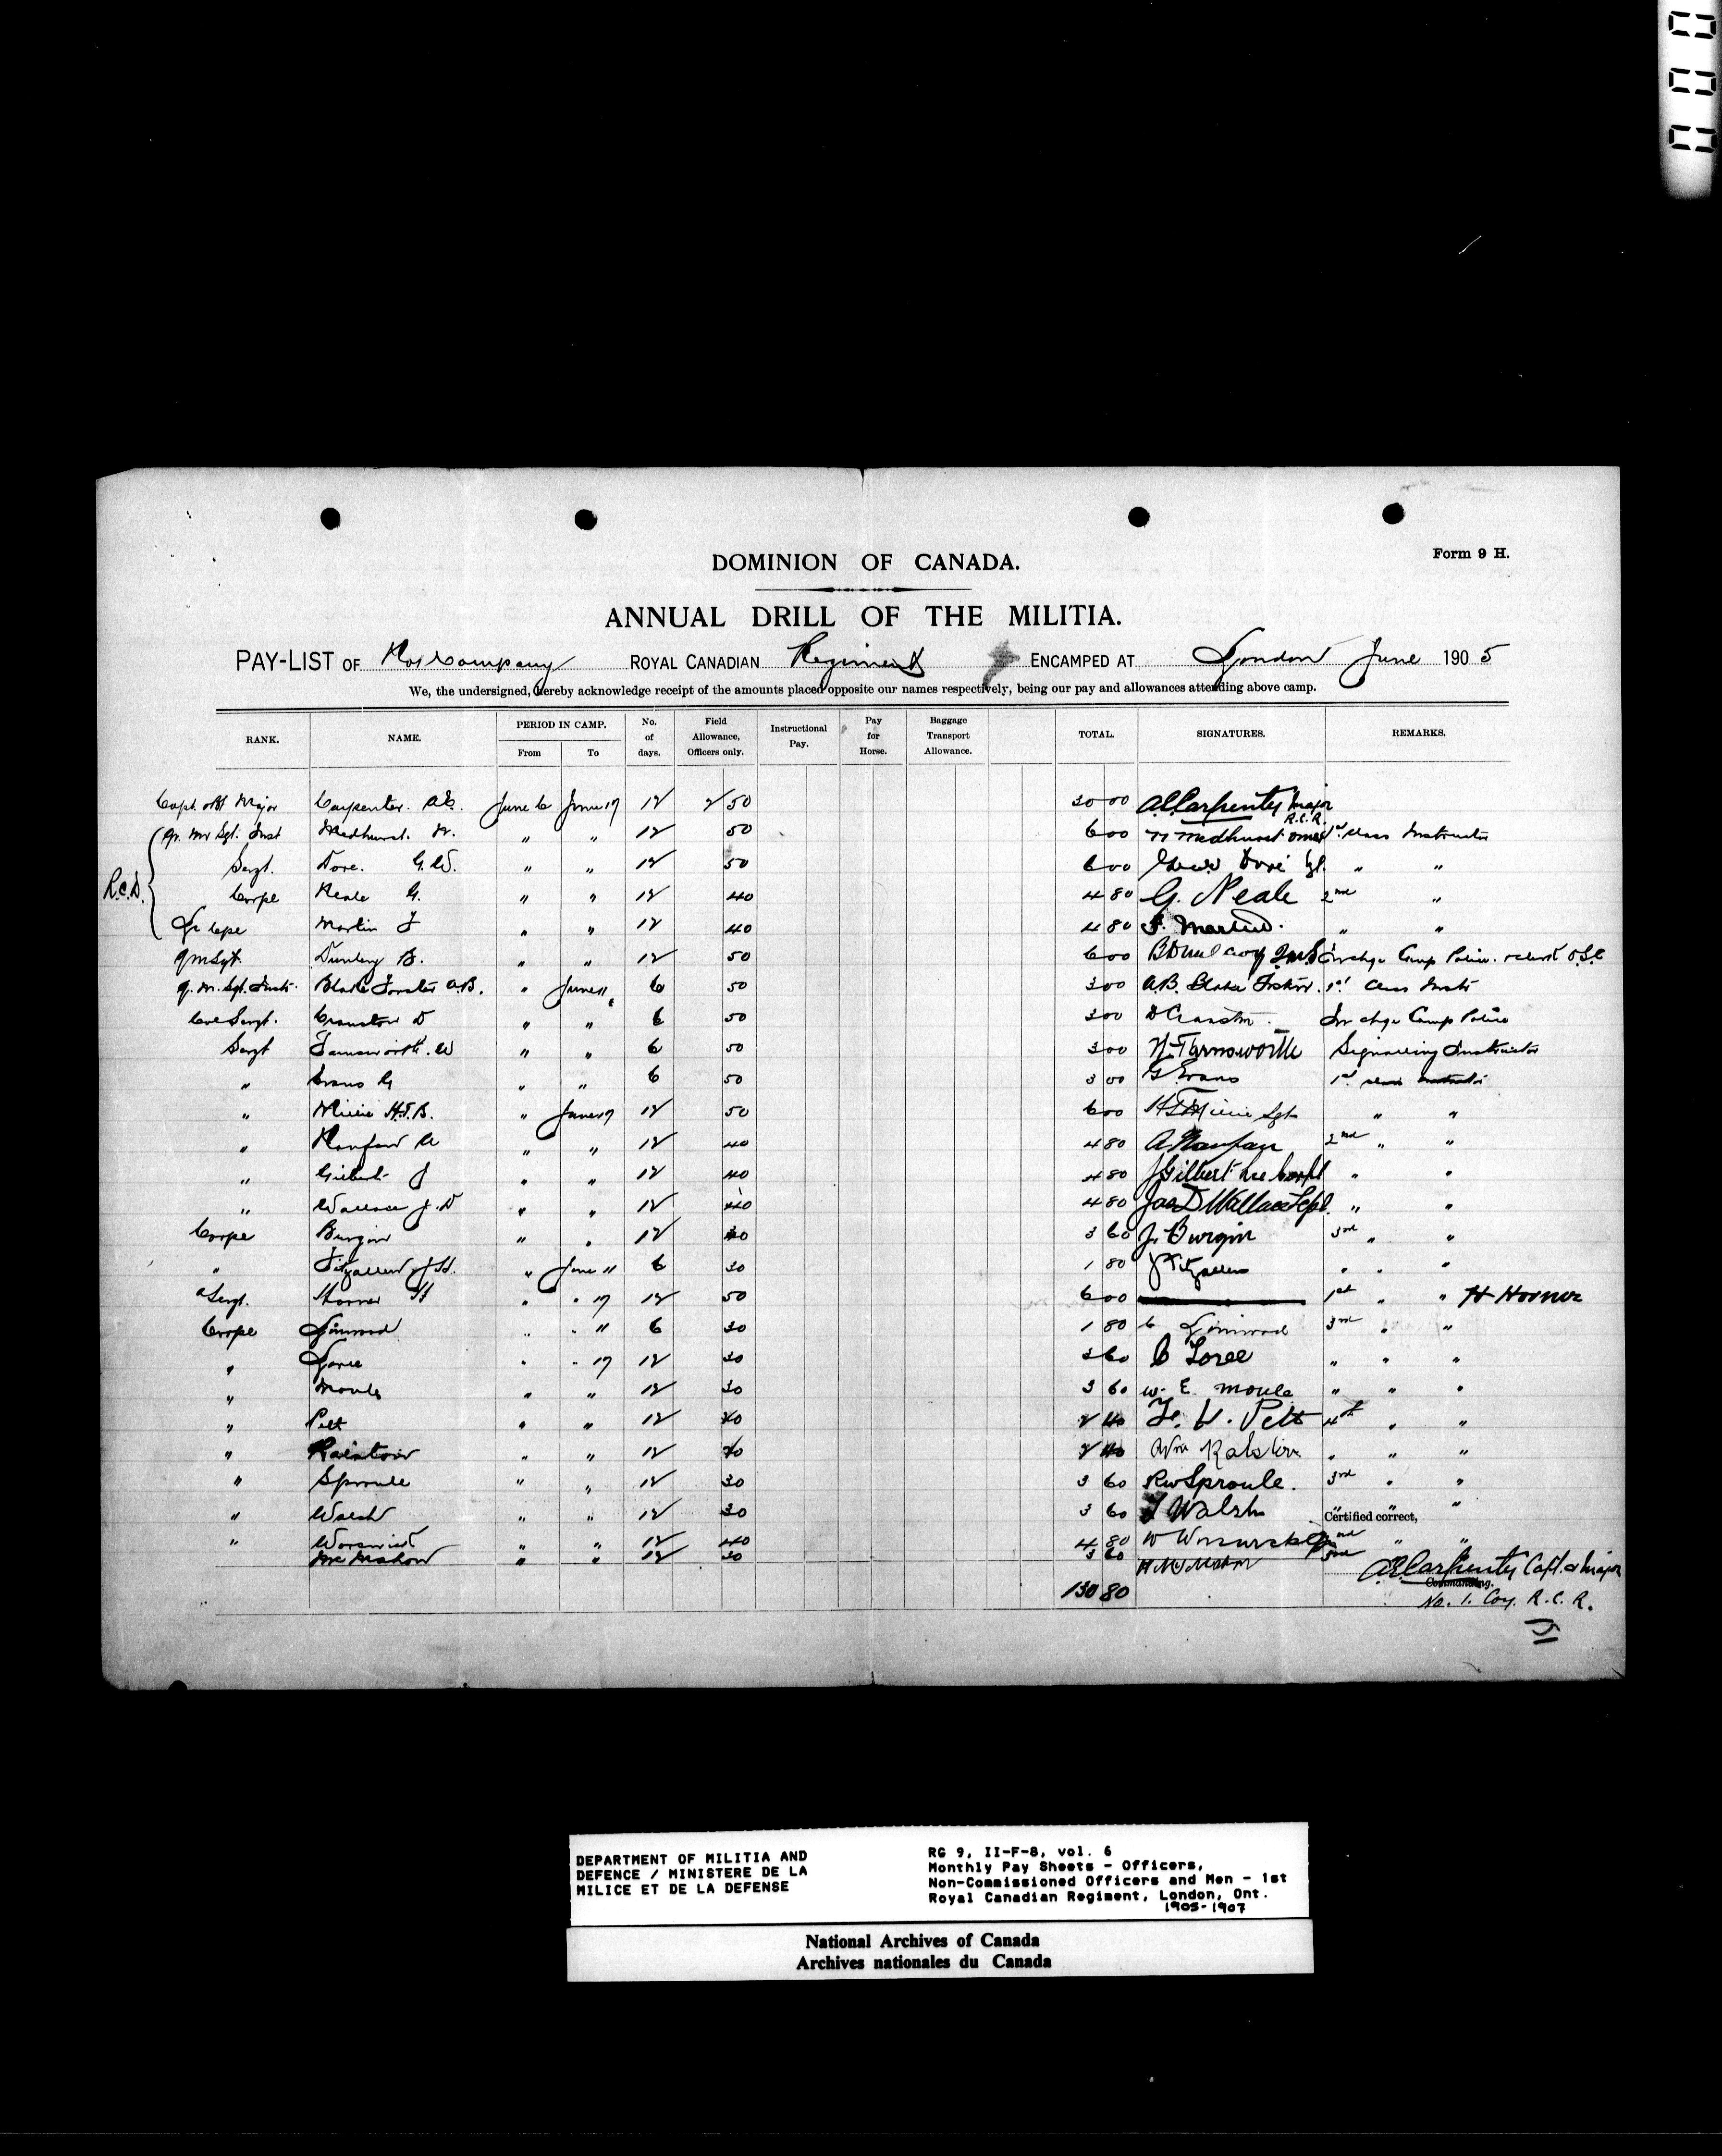 DOMINION OF CANADA.
Form 9 H.
ANNUAL DRILL OF THE MILITIA.
PAY-LIST OF No 1 Company ROYAL CANADIAN Regiment ENCAMPED AT London June 1905
We, the undersigned, hereby acknowledge receipt of the amounts placed opposite our names respectively, being our pay and allowances attending above camp.
RANK. NAME. PERIOD IN CAMP. From To No. of days. Field Allowance, Officers only. Instructional Pay. Pay for Horse. Baggage Transport Allowance. TOTAL. SIGNATURES. REMARKS.
Capt. & Bt Major Carpenter. A.E. June 6 June 17 12 2 50 30 00 A.E. Carpenter Major R.C.R.
R.C.D.
Qr. Mr Sgt. Inst Medhurst. N. " " 12 50 6 00 N Medhurst 1st Class Instructor
Sergt. Dore. G.W. " " 12 50 6 00 Geo W Dore Sgt. " "
Corpl Neale G. " " 12 40 4 80 G. Neale 2nd "
Lr Corpl Martin F " " 12 40 4 80 F. Martin. " "
QmSgt. Dunlevy B. " " 12 50 6 00 In chge Camp Police.
Q. M. Sgt. Instr. Blake Forster A.B. " June 11 6 50 3 00 A.B. Blake Forster. 1st Class Instr
Col Sergt. Cranston D " " 6 50 3 00 D Cranston. In chge Camp Police
Sergt Farnsworth. W " " 6 50 3 00 W. Farnsworth Signalling Instructor
" Evans G " " 6 50 3 00 G Evans 1st class Instructor
" Millie H.T.B. " June 17 12 50 6 00 Sgt " "
" A " " 12 40 4 80 2nd " "
" Gilbert J " " 12 40 4 80 J Gilbert Lce Corpl " "
" Wallace J. D " " 12 40 4 80 Jas D Wallace " "
Corpl Burgin " " 12 30 3 60 J. Burgin 3rd " "
" Fitzallen J.H. " June 11 6 30 1 80 J Fitzallen " " "
a Sergt. Horner H " " 17 12 50 6 00 1st " " H Horner
Corpl Linwood " " 11 6 30 1 80 C Linwood 3rd " "
" Loree " " 17 12 30 3 60 C Loree " " "
" Moule " " 12 30 3 60 W. E. Moule " " "
" Pett " " 12 20 2 40 Pett 4th " "
" Ralston " " 12 20 2 40 Wm Ralston " " "
" Sproule " " 12 30 3 60 RW Sproule. 3rd " "
" Walsh " " 12 30 3 60 J Walsh " " "
Certified correct,
" Worswick " " 12 40 4 80 W Worswick 2nd " "
McMahon " " 12 30 3 60 H McMahon 3rd
A.E. Carpenter Capt. & Major
Commanding.
130 80
No. 1. Coy. R.C.R.
DEPARTMENT OF MILITIA AND
DEFENCE / MINISTERE DE LA
MILICE ET DE LA DEFENSE
RG 9, II-F-8, vol. 6
Monthly Pay Sheets - Officers,
Non-Commissioned Officers and Men - 1st
Royal Canadian Regiment, London, Ont.
1905-1907
National Archives of Canada
Archives nationales du Canada